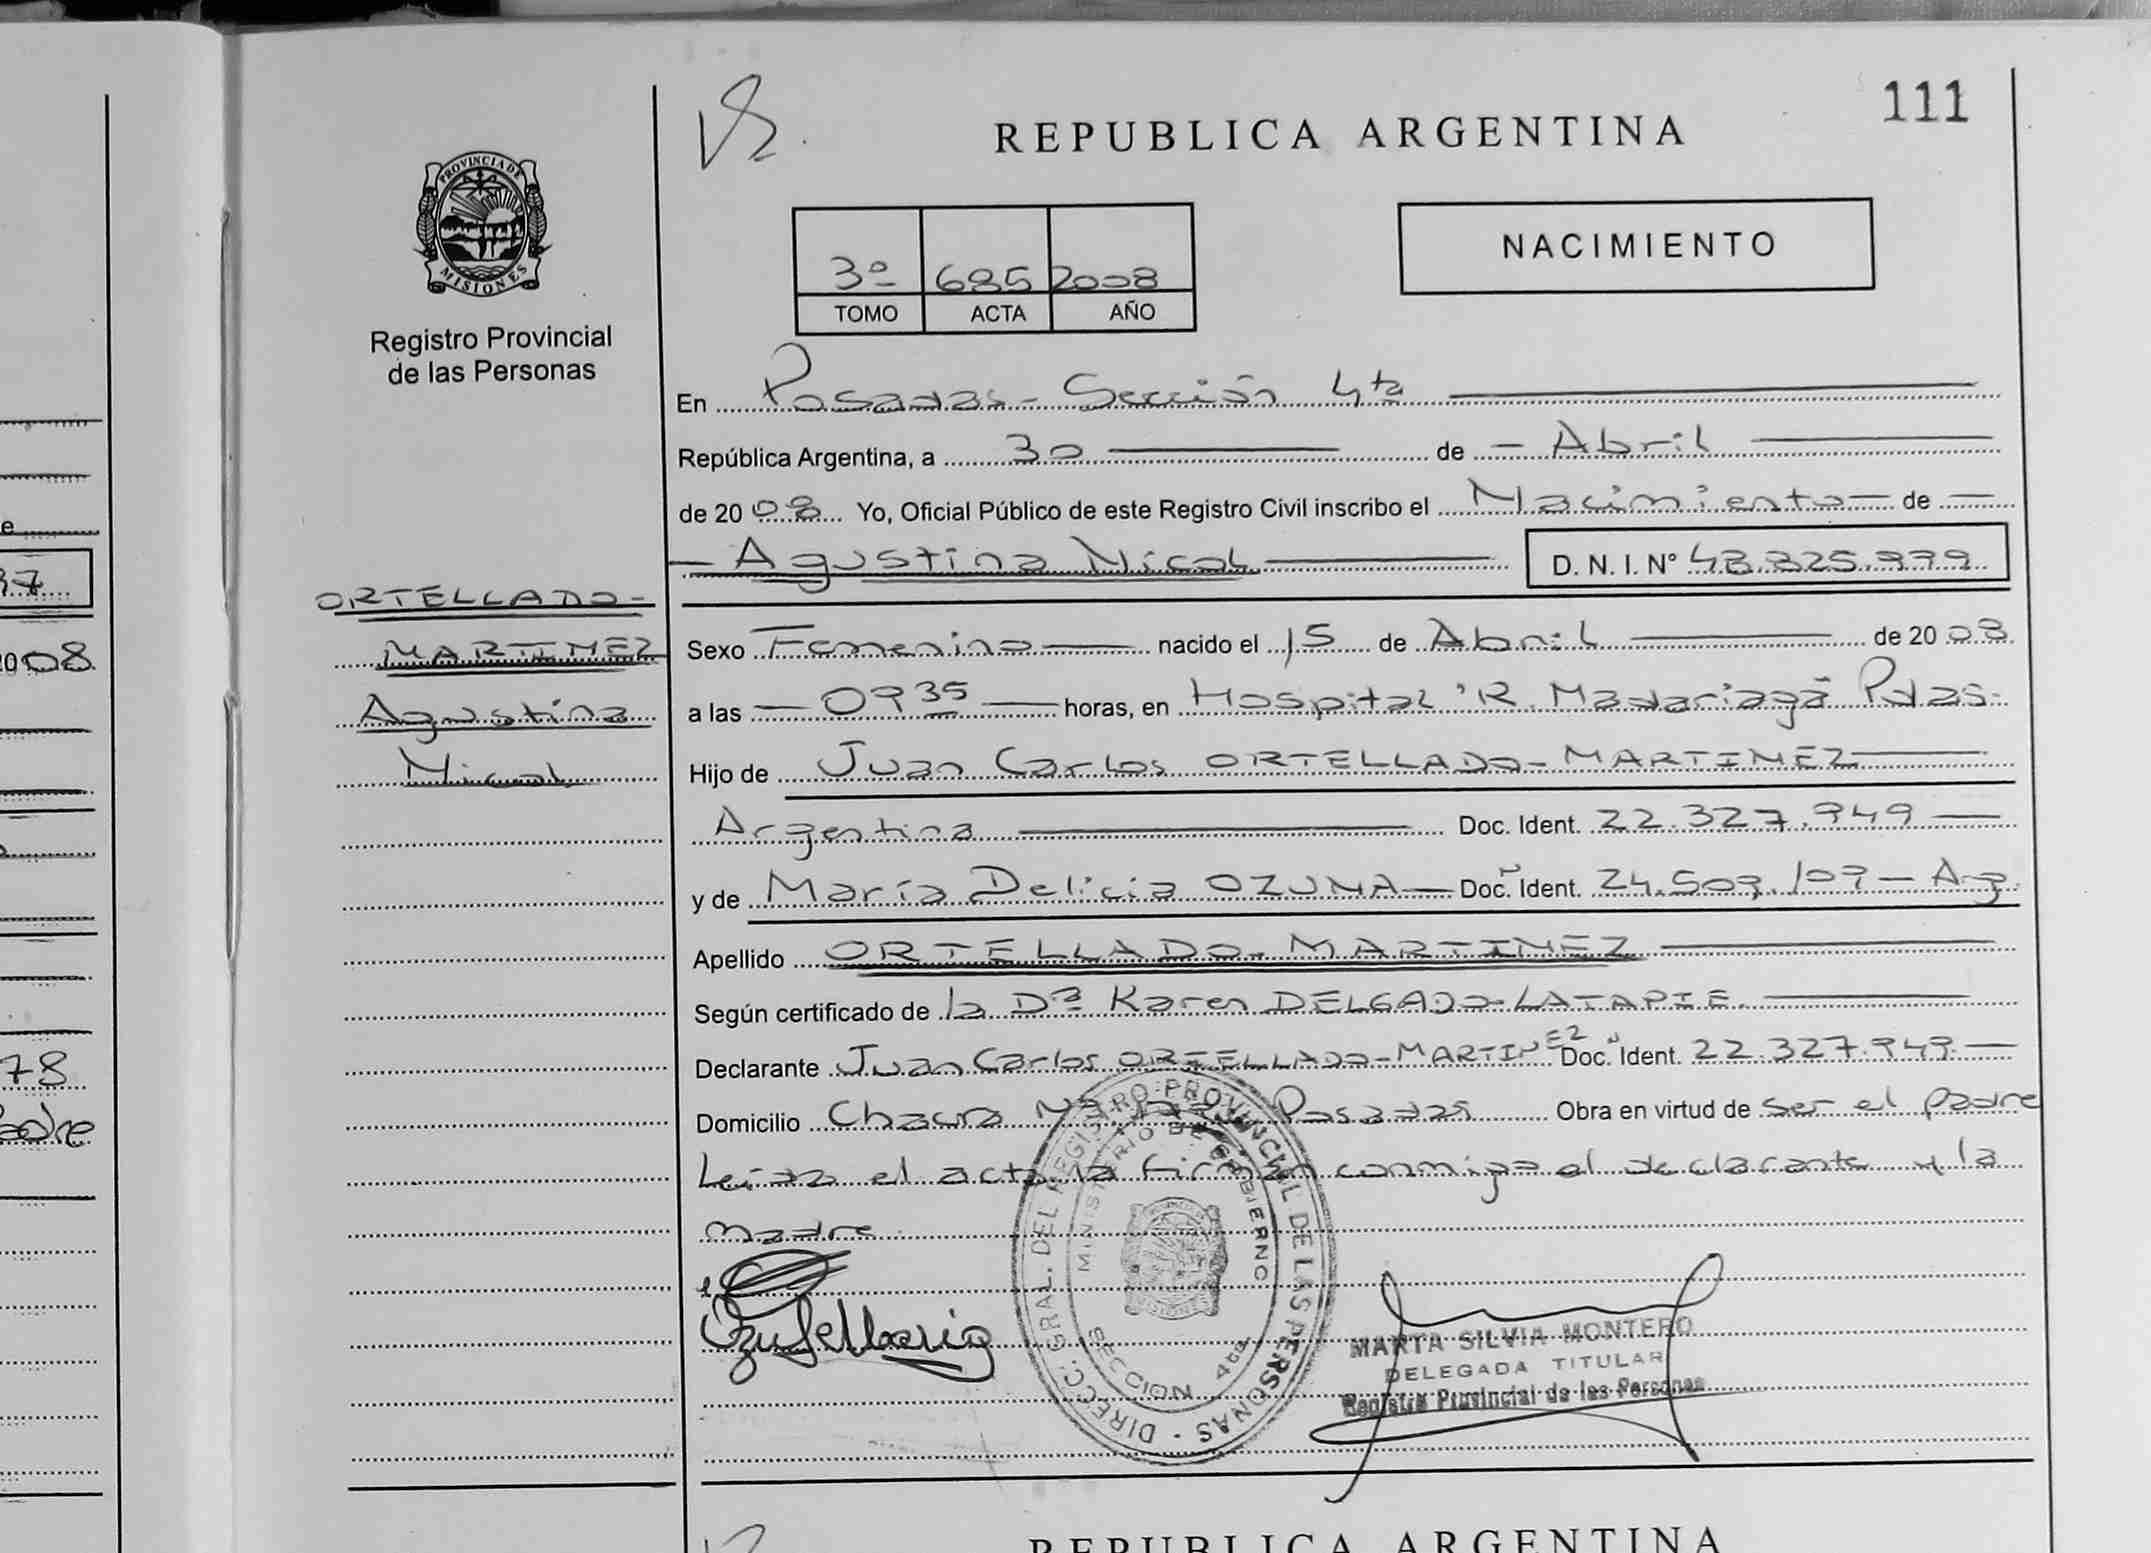 111
REPUBLICA ARGENTINA
PROVINCIA DE MISIONES
Registro Provincial
de las Personas
3º 685 2008
TOMO ACTA AÑO
NACIMIENTO
En Posadas - Sección 4ta
República Argentina, a 30 de - Abril
de 2008 Yo, Oficial Público de este Registro Civil inscribo el Nacimiento de
- Agustina Nicol D. N. I. Nº
ORTELLADO-
MARTINEZ
Agustina
Nicol
Sexo Femenino nacido el 15 de Abril de 2008
a las - 09 35 horas, en Hospital "R. Madariaga" Pdas.
Hijo de Juan Carlos ORTELLADO-MARTINEZ
Argentina Doc. Ident. 22.327.949
y de María Delicia OZUNA Doc. Ident. - Arg.
Apellido ORTELLADO-MARTINEZ
Según certificado de la Dª Karen DELGADO-LATAPIE.
Declarante Juan Carlos ORTELLADO-MARTINEZ Doc. Ident. 22.327.949.
Domicilio Chacra Posadas Obra en virtud de ser el padre
Leída el acta la firman conmigo el declarante y la
madre.
DIRECC. GRAL. DEL REGISTRO PROVINCIAL DE LAS PERSONAS
MINISTERIO DE GOBIERNO
MISIONES
SECCION 4ta
MARTA SILVIA MONTERO
DELEGADA TITULAR
Registro Provincial de las Personas
REPUBLICA ARGENTINA
37
2008.
78
padre